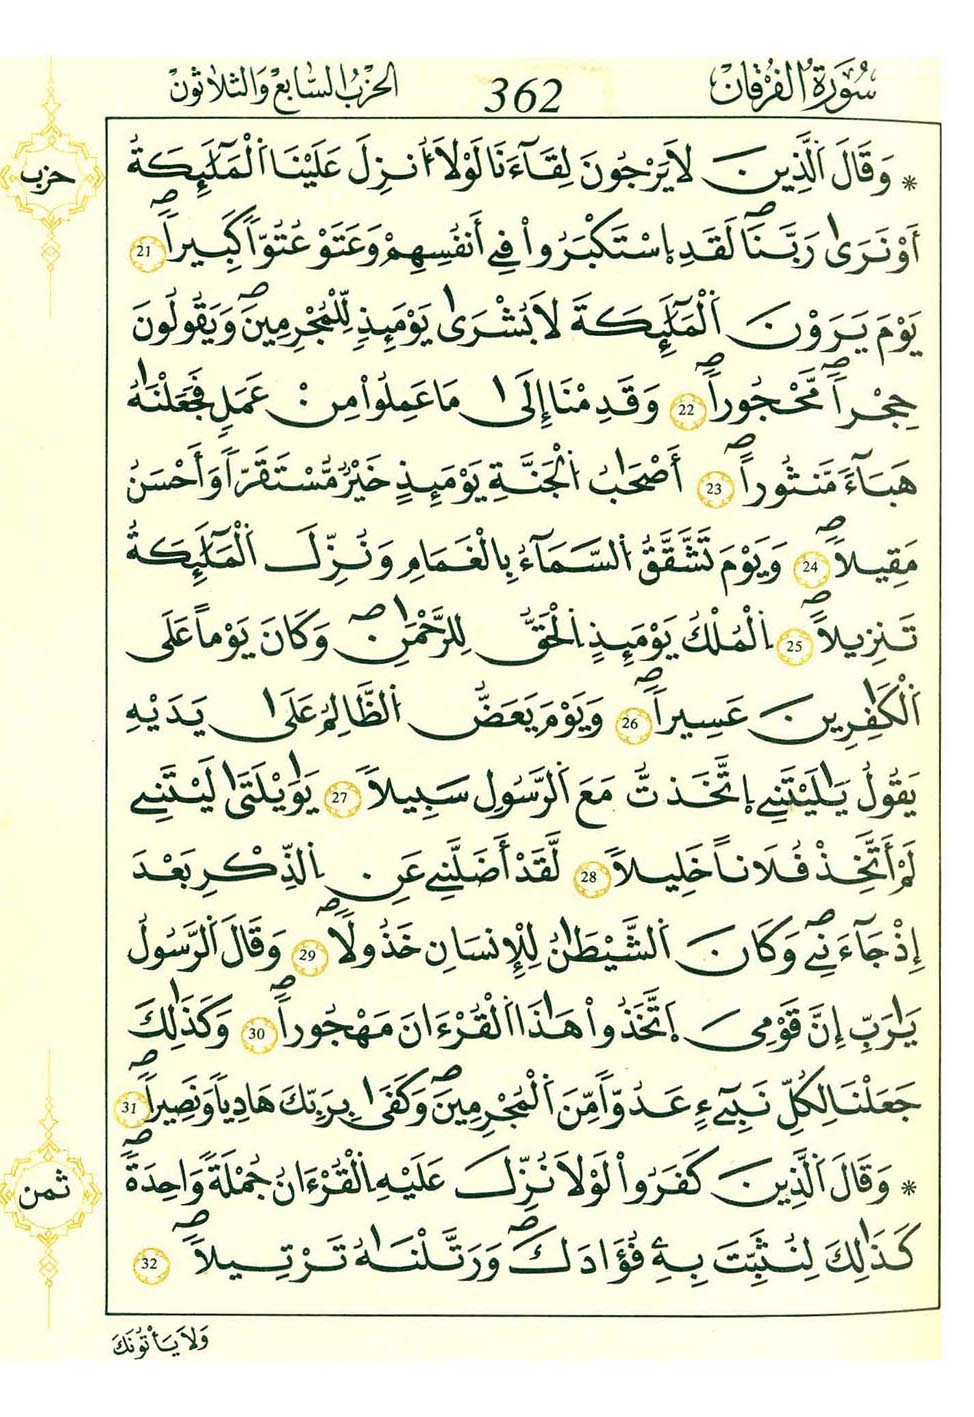 سُورَةُ الْفُرْقَانِ 362 الحِزْبُ السَّابِعُ وَالثَّلَاثُونَ
حزب
* وَقَالَ اَلذِينَ لَا يَرْجُونَ لِقَآءَنَا لَوْلَآ أُنزِلَ عَلَيْنَا اَلْمَلَٰٓئِكَةُ
أَوْ نَرَىٰ رَبَّنَاۖ لَقَدِ اِسْتَكْبَرُواْ فِےٓ أَنفُسِهِمْ وَعَتَوْ عُتُوّاٗ كَبِيراٗۖ 21
يَوْمَ يَرَوْنَ اَلْمَلَٰٓئِكَةَ لَا بُشْرَىٰ يَوْمَئِذٖ لِّلْمُجْرِمِينَۖ وَيَقُولُونَ
حِجْراٗ مَّحْجُوراٗۖ 22 وَقَدِمْنَآ إِلَىٰ مَا عَمِلُواْ مِنْ عَمَلٖ فَجَعَلْنَٰهُ
هَبَآءٗ مَّنثُوراًۖ 23 أَصْحَٰبُ اُلْجَنَّةِ يَوْمَئِذٍ خَيْرٞ مُّسْتَقَرّاٗ وَأَحْسَنُ
مَقِيلاٗۖ 24 وَيَوْمَ تَشَّقَّقُ اُلسَّمَآءُ بِالْغَمَٰمِ وَنُزِّلَ اَلْمَلَٰٓئِكَةُ
تَنزِيلاًۖ 25 اِلْمُلْكُ يَوْمَئِذٍ اِلْحَقُّ لِلرَّحْمَٰنِۖ وَكَانَ يَوْماً عَلَى
اَلْكَٰفِرِينَ عَسِيراٗۖ 26 وَيَوْمَ يَعَضُّ اُلظَّالِمُ عَلَىٰ يَدَيْهِ
يَقُولُ يَٰلَيْتَنِے اِتَّخَذتُّ مَعَ اَلرَّسُولِ سَبِيلاٗ 27 يَٰوَيْلَتَىٰ لَيْتَنِے
لَمْ أَتَّخِذْ فُلَاناً خَلِيلاٗ 28 لَّقَدْ أَضَلَّنِے عَنِ اِلذِّكْرِ بَعْدَ
إِذْ جَآءَنِےۖ وَكَانَ اَلشَّيْطَٰنُ لِلْإِنسَٰنِ خَذُولاٗۖ 29 وَقَالَ اَلرَّسُولُ
يَٰرَبِّ إِنَّ قَوْمِي اَتَّخَذُواْ هَٰذَا اَلْقُرْءَانَ مَهْجُوراٗۖ 30 وَكَذَٰلِكَ
جَعَلْنَا لِكُلِّ نَبِيٓءٍ عَدُوّاٗ مِّنَ اَلْمُجْرِمِينَۖ وَكَفَىٰ بِرَبِّكَ هَادِياٗ وَنَصِيراٗۖ 31
ثمن
* وَقَالَ اَلذِينَ كَفَرُواْ لَوْلَا نُزِّلَ عَلَيْهِ اِلْقُرْءَانُ جُمْلَةٗ وَٰحِدَةٗۖ
كَذَٰلِكَ لِنُثَبِّتَ بِهِۦ فُؤَادَكَۖ وَرَتَّلْنَٰهُ تَرْتِيلاٗۖ 32
وَلَا يَأْتُونَكَ